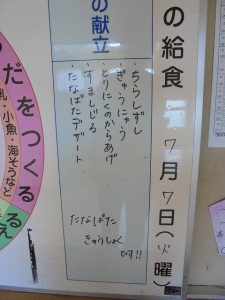 の給食 7月7日(火曜)
の献立
ちらしずし
ぎゅうにゅう
とりにくのからあげ
すましじる
たなばたデザート
たなばた
きゅうしょく
です!!
だをつくる
乳・小魚・海そうなど